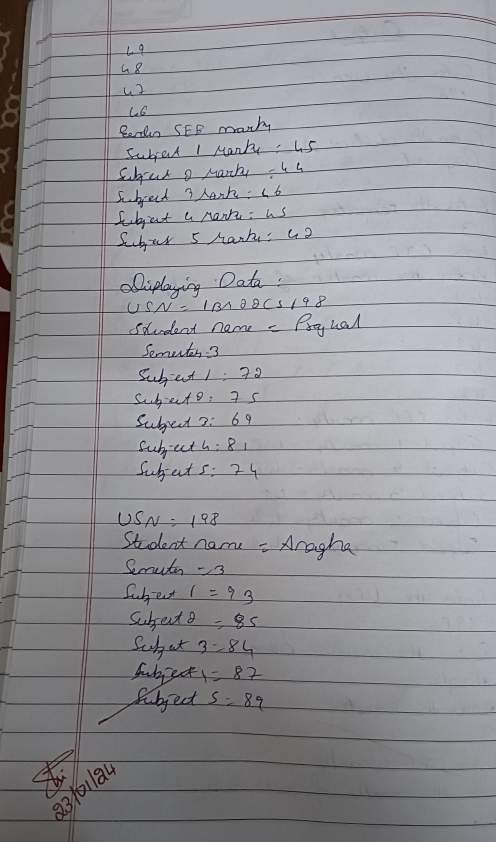 49
48
47
46
Enter SEE marks
Subject 1 Marks : 45
Subject 2 Marks : 44
Subject 3 Marks : 46
Subject 4 Marks : 45
Subject 5 Marks : 42
Displaying Data :
USN = 1BM22CS198
Student name = Prajwal
Semester : 3
Subject 1 : 72
Subject 2 : 75
Subject 3 : 69
Subject 4 : 81
Subject 5 : 74
USN = 198
Student name = Anagha
Semester = 3
Subject 1 = 93
Subject 2 = 85
Subject 3 = 84
Subject 1 = 87
Subject 5 = 89
23/01/24